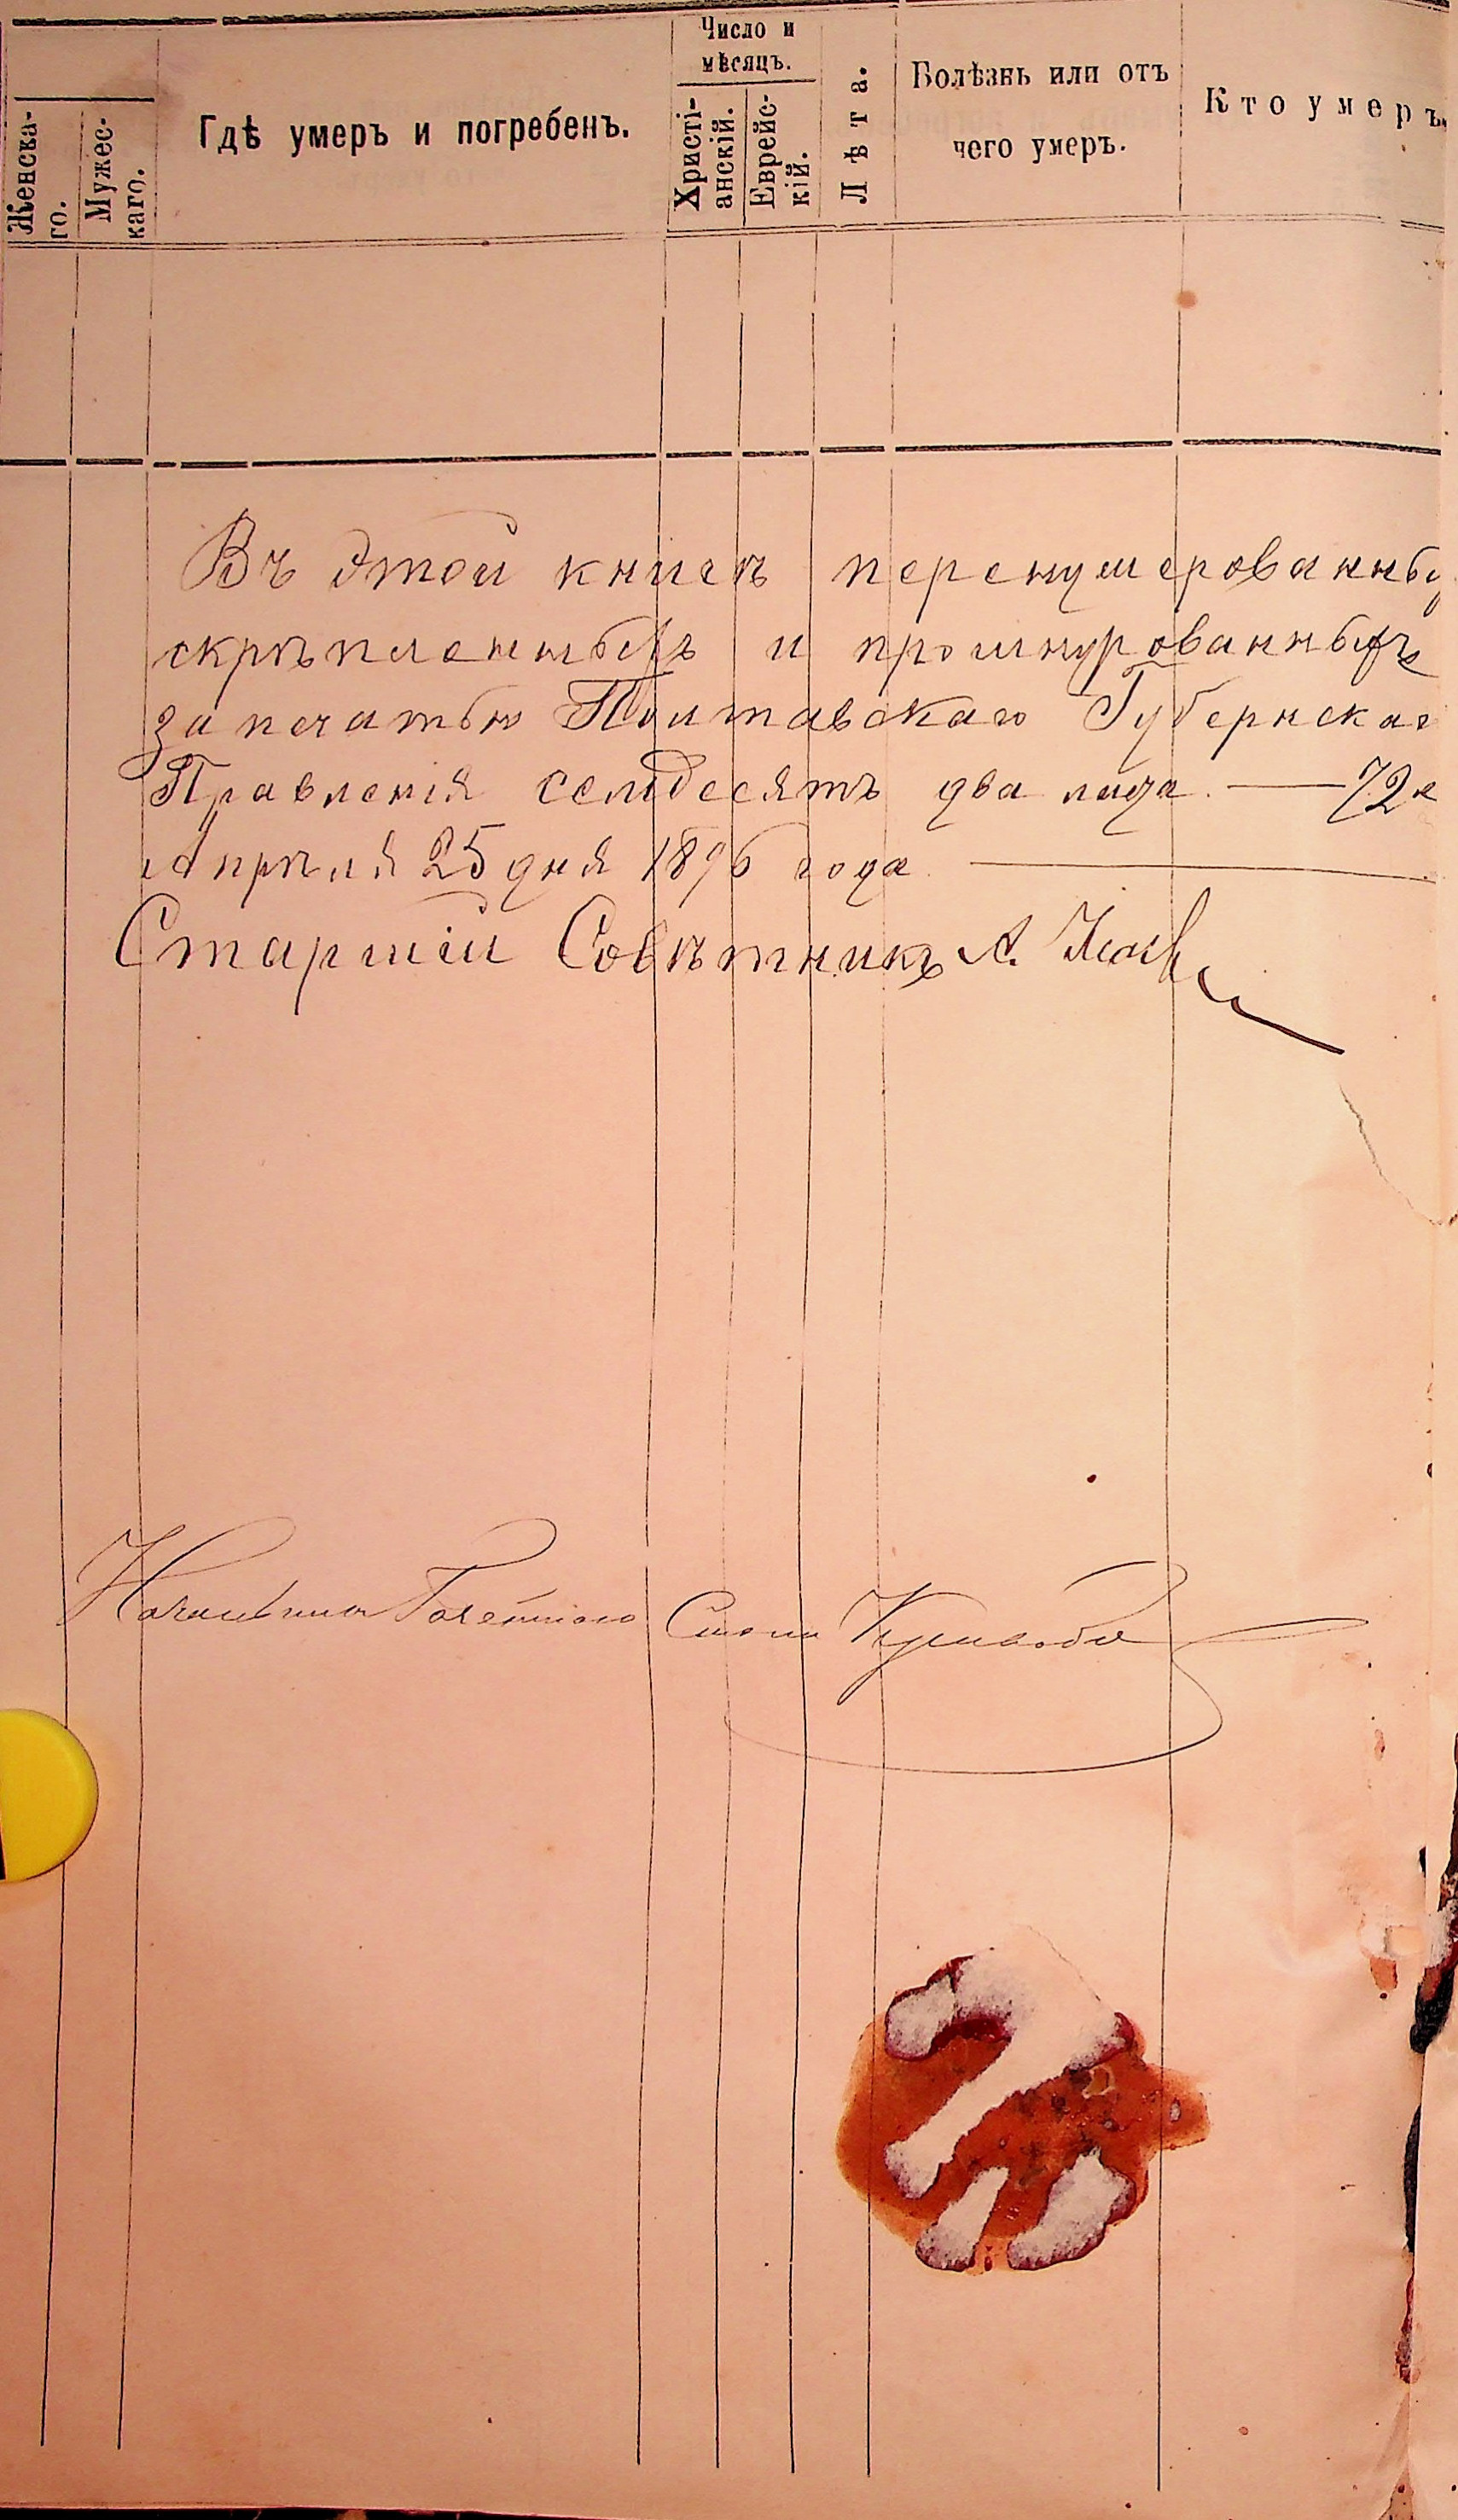 Женска-
го.
Мужес-
каго.
Гдѣ умеръ и погребенъ.
Число и
мѣсяцъ.
Христі-
анскій.
Еврейс-
кій.
Лѣта.
Болѣзнь или отъ
чего умеръ.
Кто умеръ.
Въ этой книгѣ перенумерованны
скрѣпленныхъ и прошнурованныхъ
за печатью Полтавскаго Губернскаг
Правленія семдесятъ два листа. — 72 л
Апрѣля 25 дня 1896 года
Старшій Совѣтникъ А.